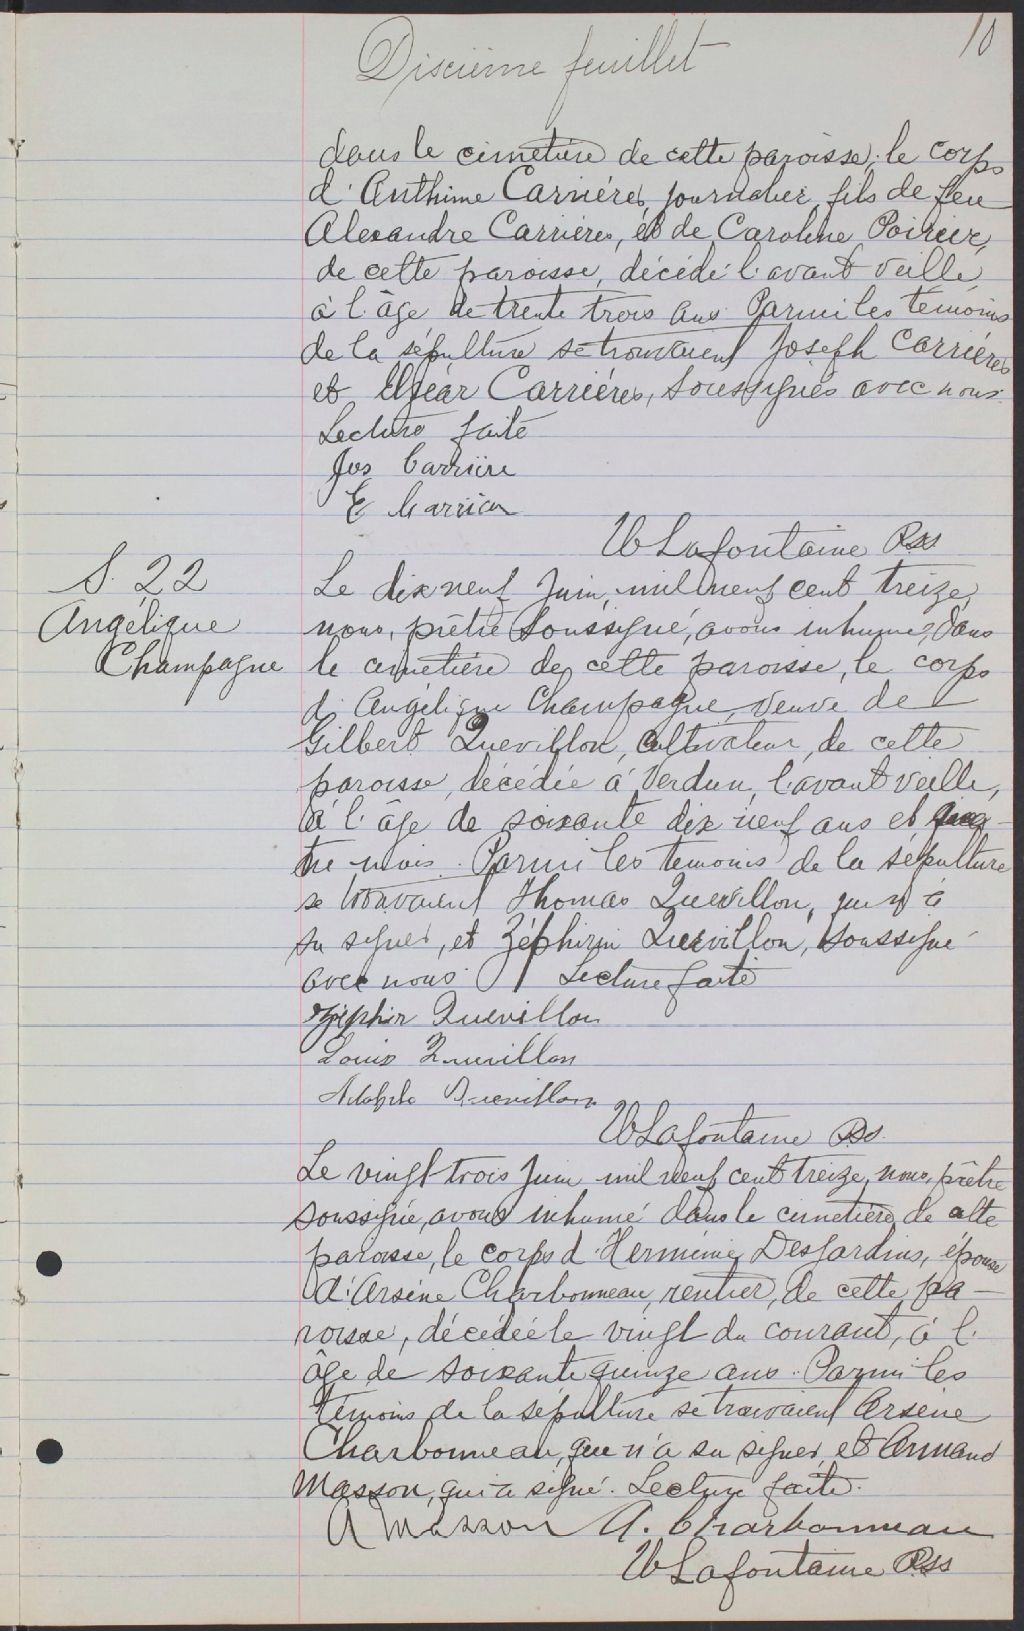 10
Dixième feuillet
dans le cimetière de cette paroisse, le corps
d'Anthime Carrières, journalier, fils de feu
Alexandre Carrières, et de Caroline Poirier,
de cette paroisse, décédé l'avant veille
à l'âge de trente trois ans. Parmi les témoins
de la sépulture se trouvaient Joseph Carrières
et Elzéar Carrières, soussignés avec nous.
Lecture faite
Jos Carrière
E Carrière
Lafontaine Pss
S. 22
Angélique
Champagne
Le dix neuf Juin, mil neuf cent treize,
nous, prêtre soussigné, avons inhumé, dans
le cimetière de cette paroisse, le corps
d'Angélique Champagne, veuve de
Gilbert Quevillon, cultivateur, de cette
paroisse, décédée à Verdun, l'avant veille,
à l'âge de soixante dix neuf ans et qua-
tre mois. Parmi les temoins de la sépulture
se trouvaient Thomas Quevillon, qui n'a
su signer, et Zéphirin Quevillon, soussigné
avec nous. Lecture faite
Zéphir Quevillon
Louis Quevillon
Quevillon
Lafontaine Pss.
Le vingt trois Juin mil neuf cent treize, nous, prêtre
soussigné, avons inhumé dans le cimetière de cette
paroisse, le corps d'Herménie Desjardins, épouse
d'Arsène Charbonneau, rentier, de cette pa-
roisse, décédée le vingt du courant, à l'
âge de soixante quinze ans. Parmi les
témoins de la sépulture se trouvaient Arsène
Charbonneau, qui n'a su signer, et Armand
Masson, qui a signé. Lecture faite.
A Masson A. Charbonneau
Lafontaine Pss